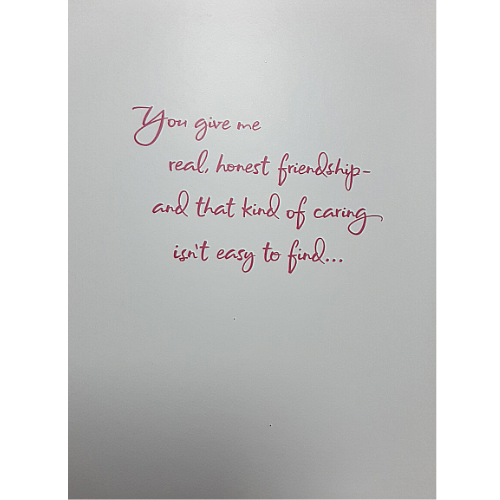 You give me
real, honest friendship-
and that kind of caring
isn't easy to find...